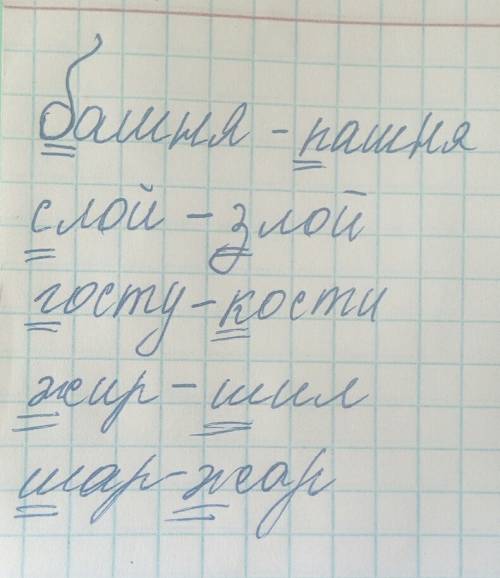 башня - пашня
слой - злой
госту - кости
жир - шил
шар - жар